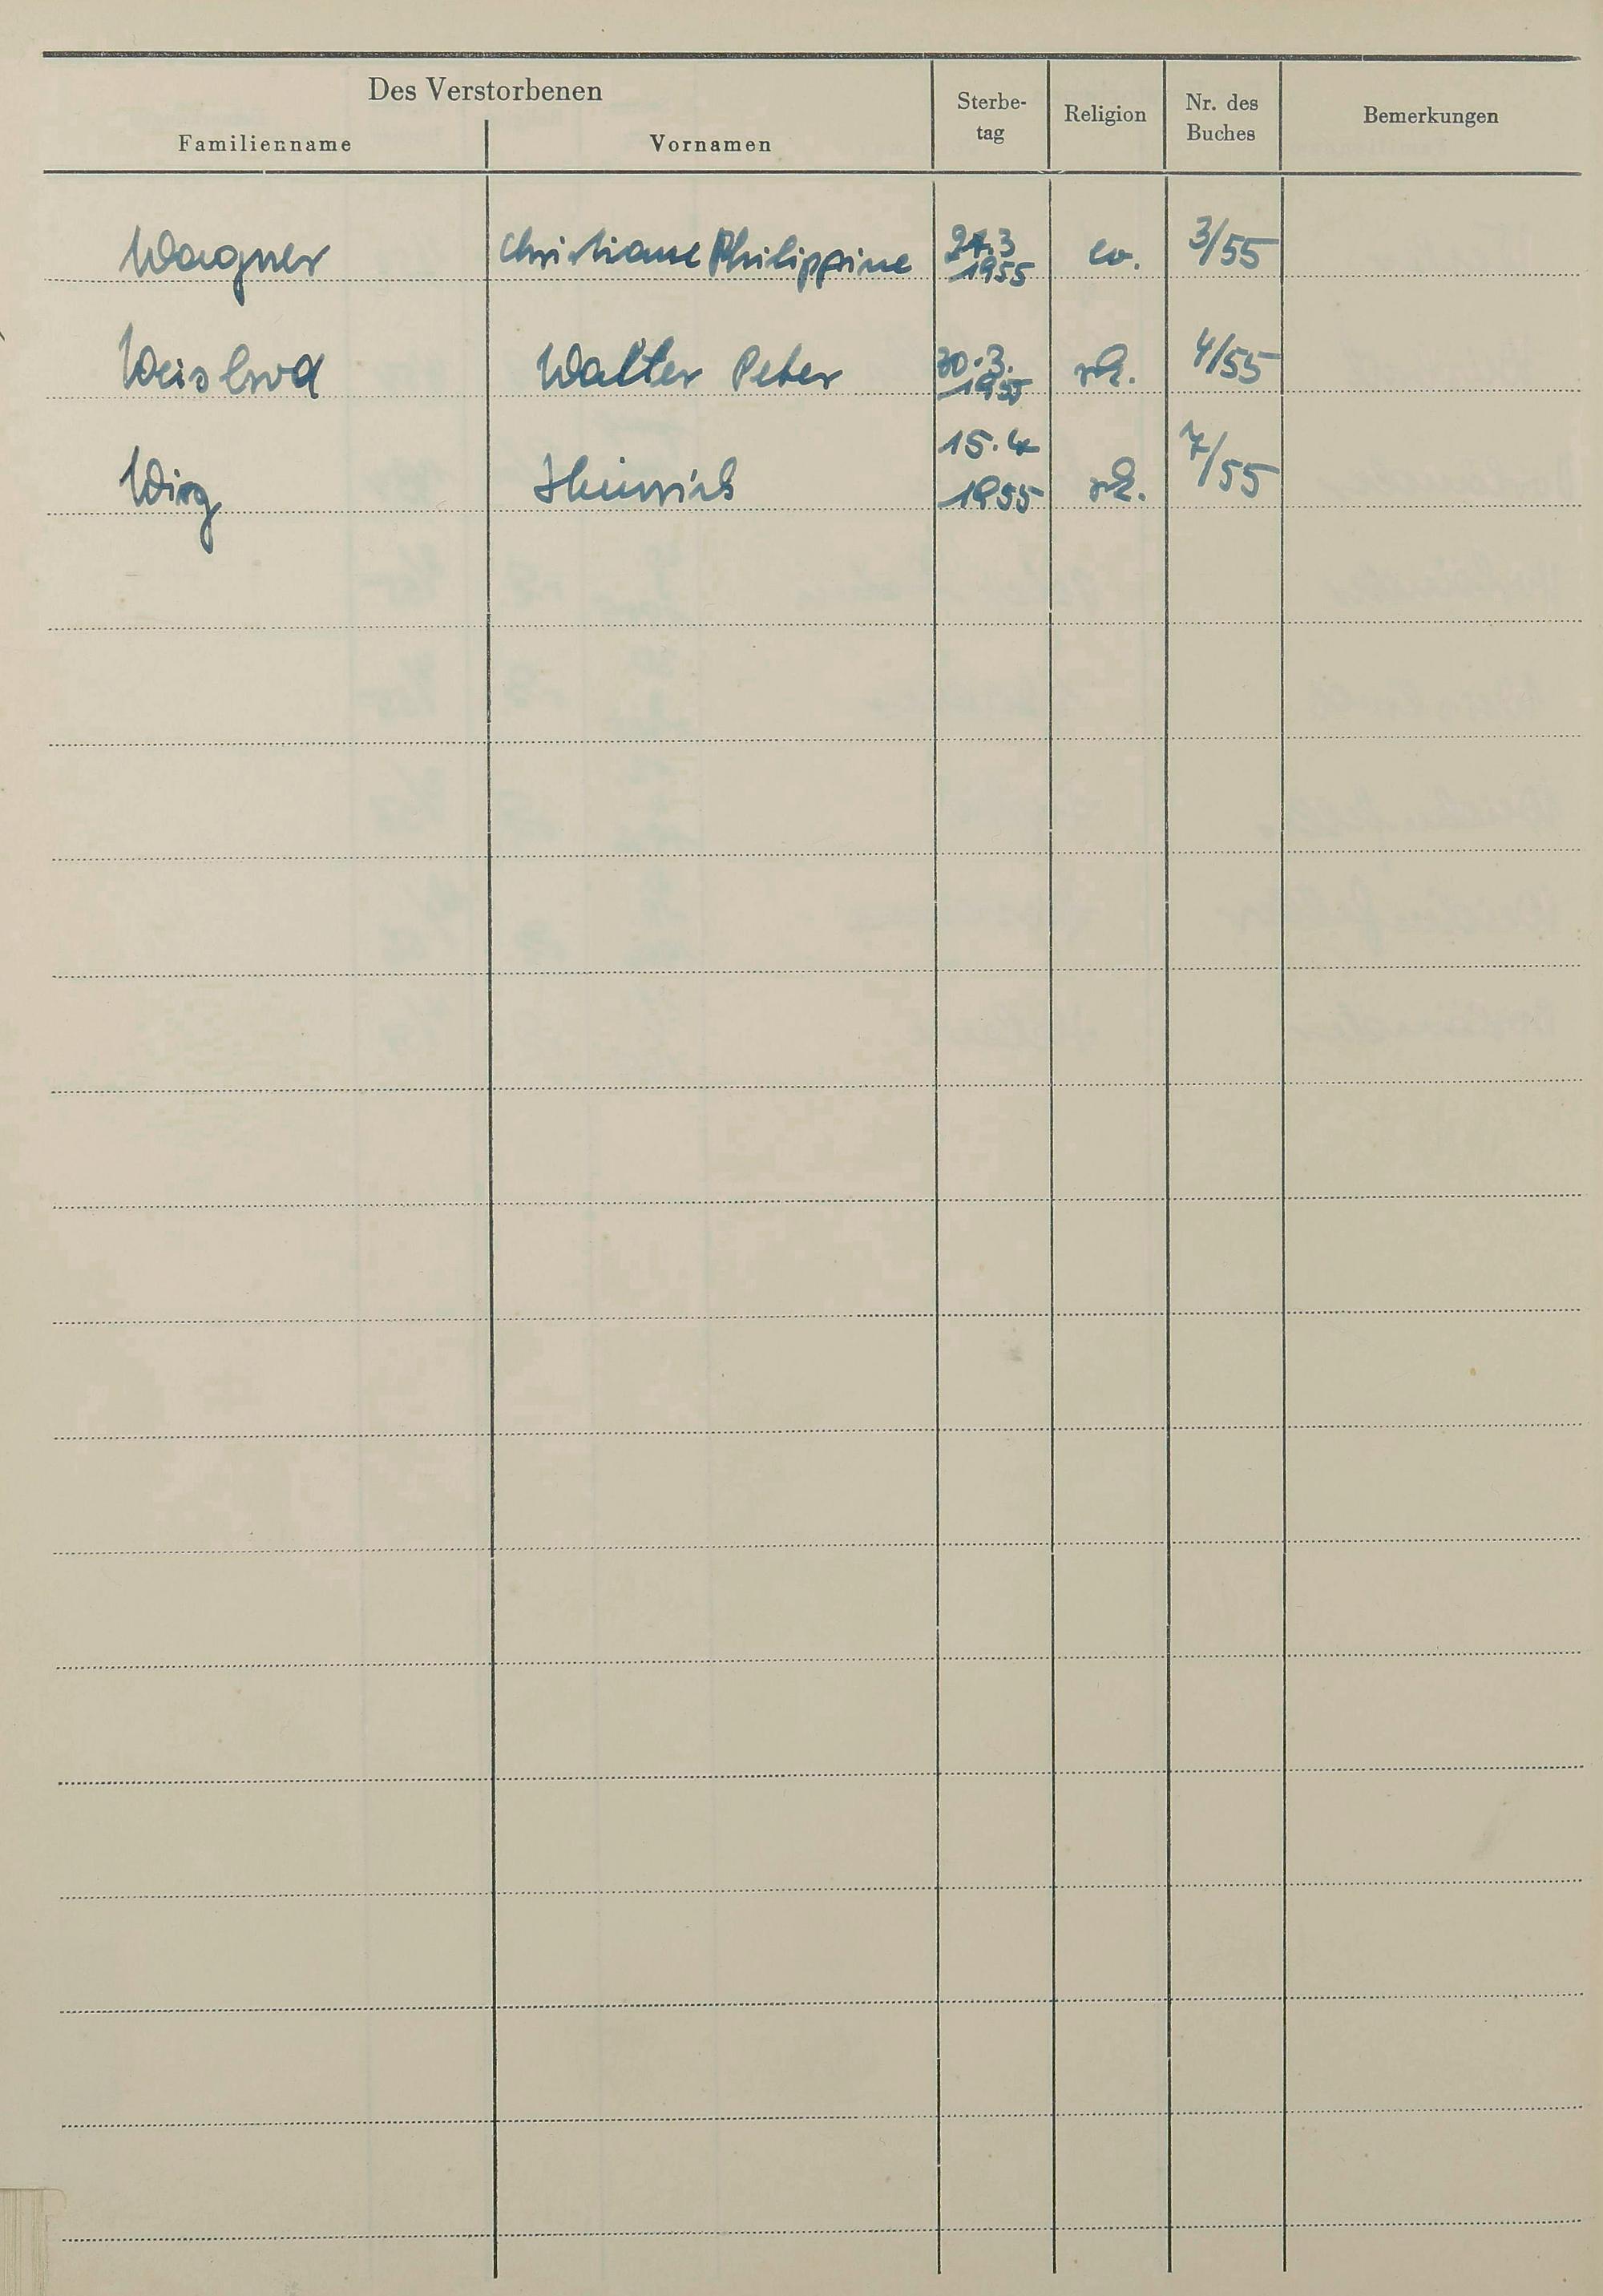 Des Verstorbenen
Familienname Vornamen Sterbe-tag Religion Nr. des Buches Bemerkungen
Wagner Christiane Philippine 24.3 1955 ev. 3/55
Weisbrod Walter Peter 30.3. 1955 rk. 4/55
Wirg Heinrich 15.4 1955 rk. 7/55